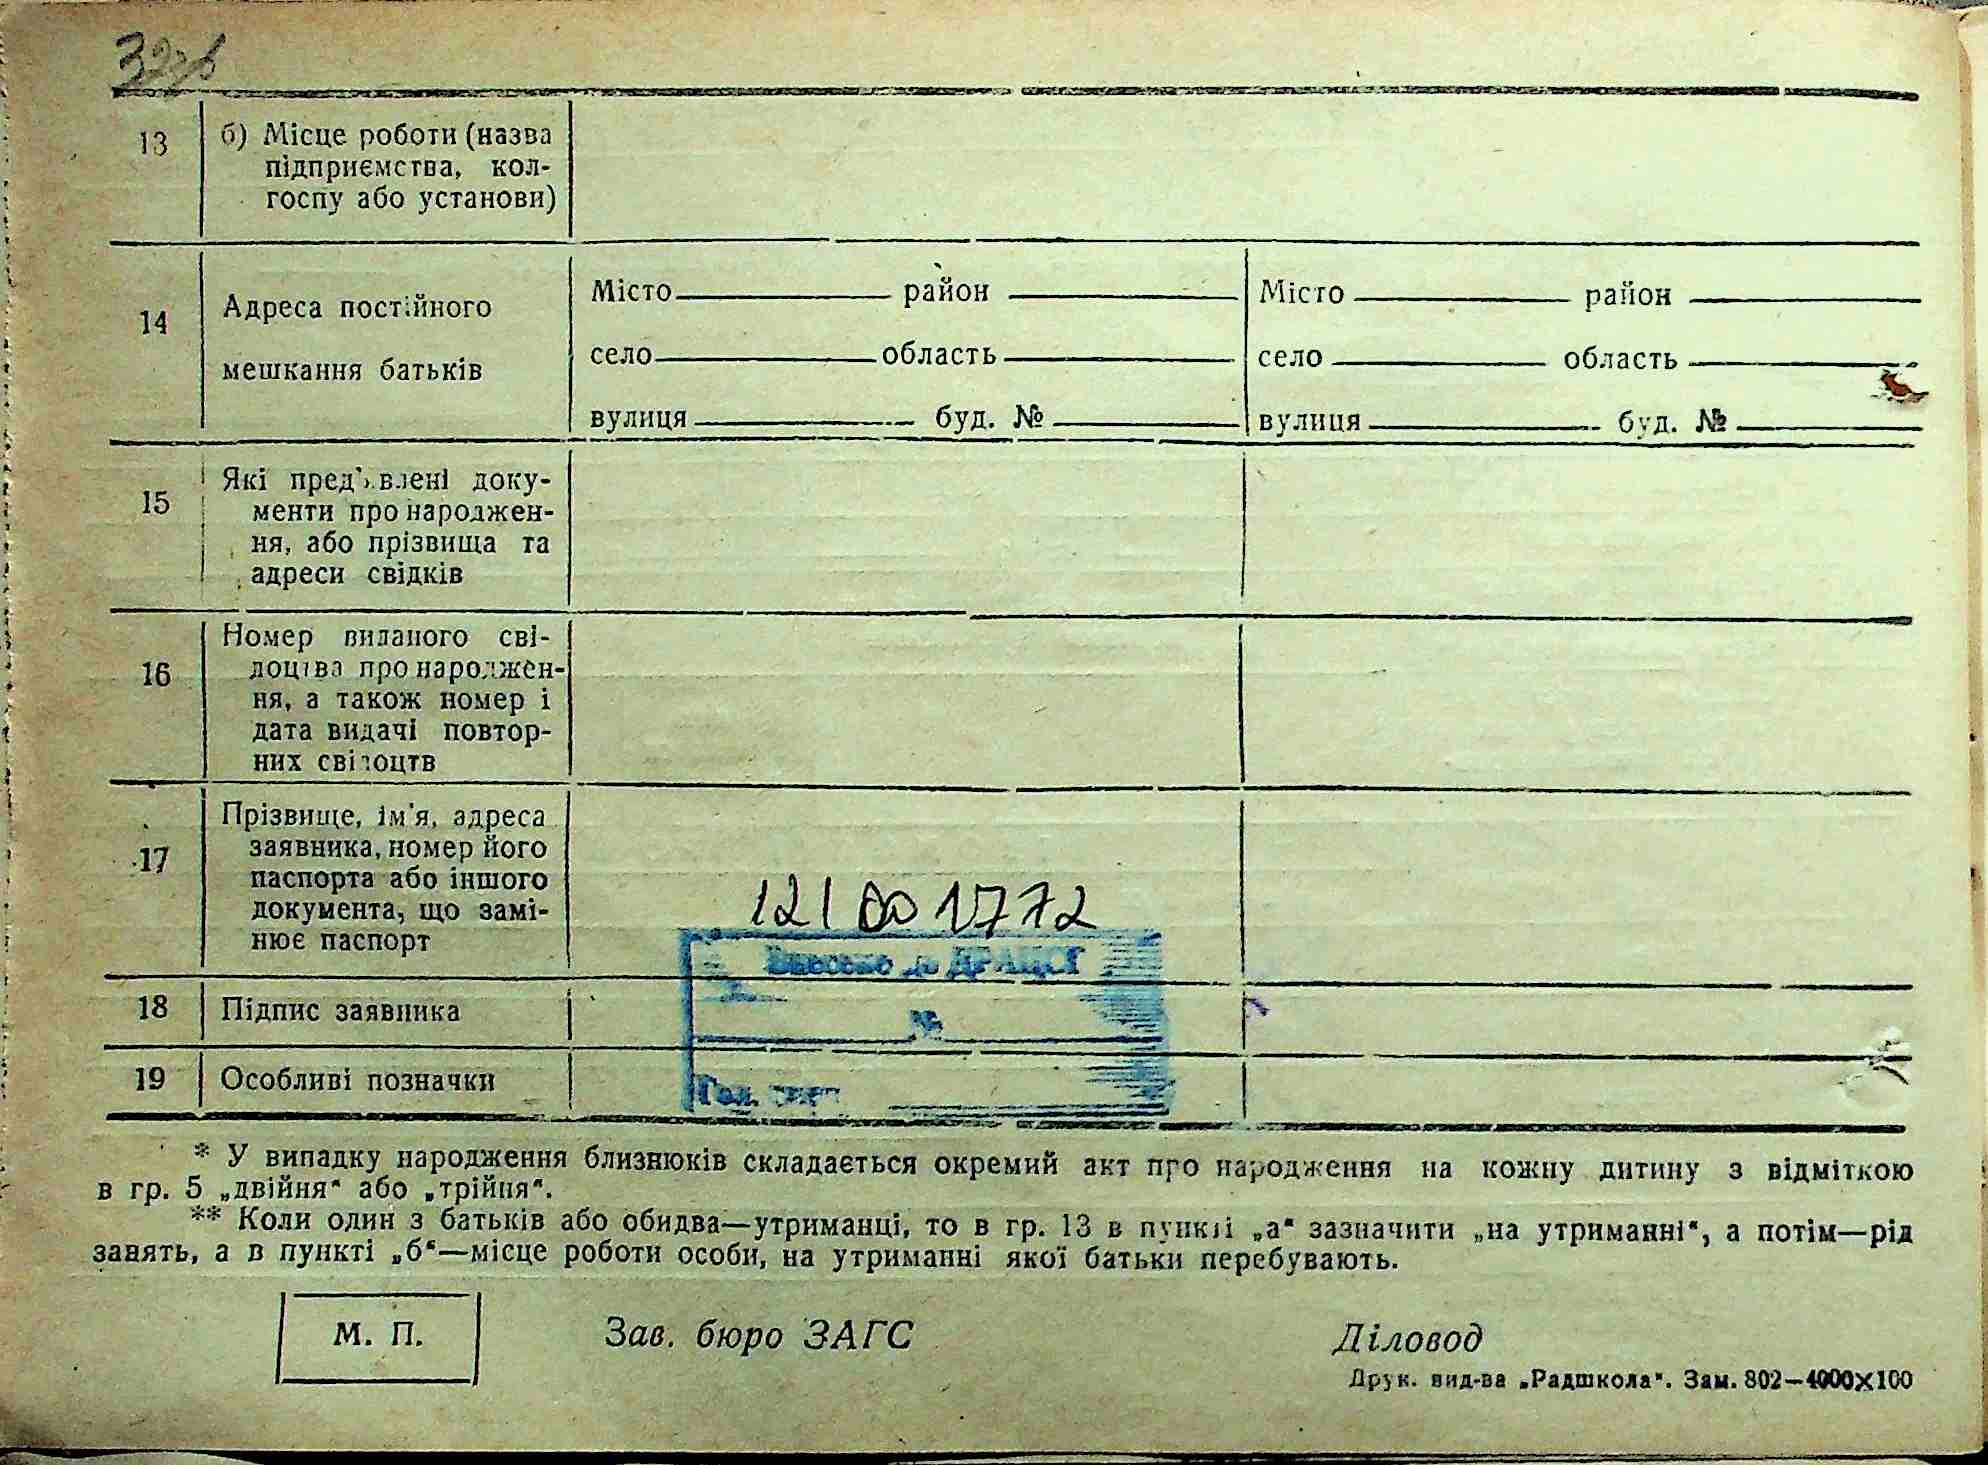 32зв
13 б) Місце роботи (назва
підприємства, кол-
госпу або установи)
14 Адреса постійного
мешкання батьків
Місто район
село область
вулиця буд. №
Місто район
село область
вулиця буд. №
15 Які пред'явлені доку-
менти про народжен-
ня, або прізвища та
адреси свідків
16 Номер виданого сві-
доцтва про народжен-
ня, а також номер і
дата видачі повтор-
них свідоцтв
17 Прізвище, ім'я, адреса
заявника, номер його
паспорта або іншого
документа, що замі-
нює паспорт
121 00 1772
Внесено до ДРАЦСГ
№
Гол. спец.
18 Підпис заявника
19 Особливі позначки
* У випадку народження близнюків складається окремий акт про народження на кожну дитину з відміткою
в гр. 5 „двійня“ або „трійня“.
** Коли один з батьків або обидва—утриманці, то в гр. 13 в пункті „а“ зазначити „на утриманні“, а потім—рід
занять, а в пункті „б“—місце роботи особи, на утриманні якої батьки перебувають.
М. П.
Зав. бюро ЗАГС
Діловод
Друк. вид-ва „Радшкола“. Зам. 802—4000×100